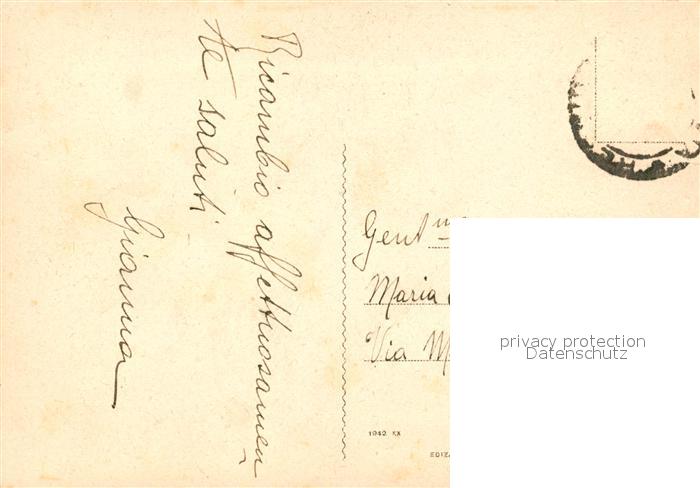 Ricambio affettuosamen-
te saluti
Gianna
Gent ma
Maria
Via M
1942 XX
EDIZ
privacy protection
Datenschutz